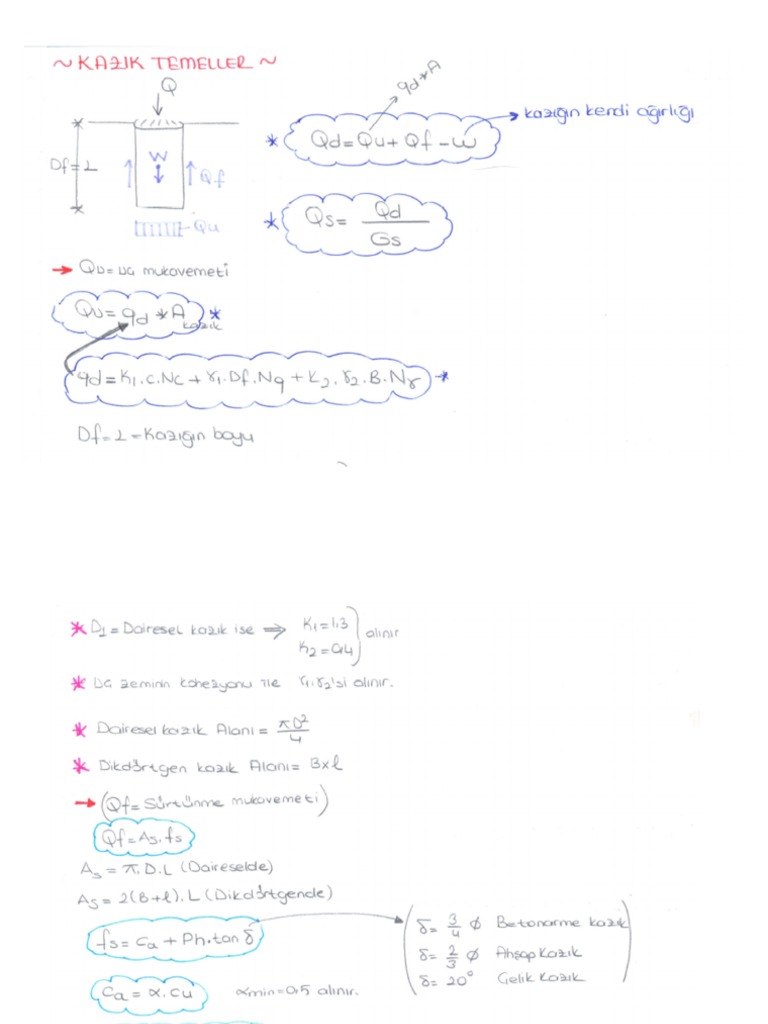 ~ KAZIK TEMELLER ~
Q
qd*A
* Qd=Qu+Qf-W
kazığın kendi ağırlığı
Df=L
W
Qf
Qu
* Qs= Qd/Gs
→ Qu= uç mukavemeti
Qu=qd*A kazık *
qd=K1.c.Nc+γ1.Df.Nq+K2.γ2.B.Nγ *
Df=L=Kazığın boyu
* D1=Dairesel kazık ise ⇒ K1=1,3
K2=0,4
alınır
* uç zeminin kohezyonu ile γ1.γ2'si alınır.
* Dairesel kazık Alanı= πD²/4
* Dikdörtgen kazık Alanı= Bxl
→ (Qf= Sürtünme mukavemeti)
Qf=As.fs
As = π.D.L (Daireselde)
As=2(B+l).L (Dikdörtgende)
fs=ca+Ph.tan δ
δ= 3/4 ϕ Betonarme kazık
δ= 2/3 ϕ Ahşap kazık
δ= 20° Çelik kazık
ca=α.cu αmin=0,5 alınır.